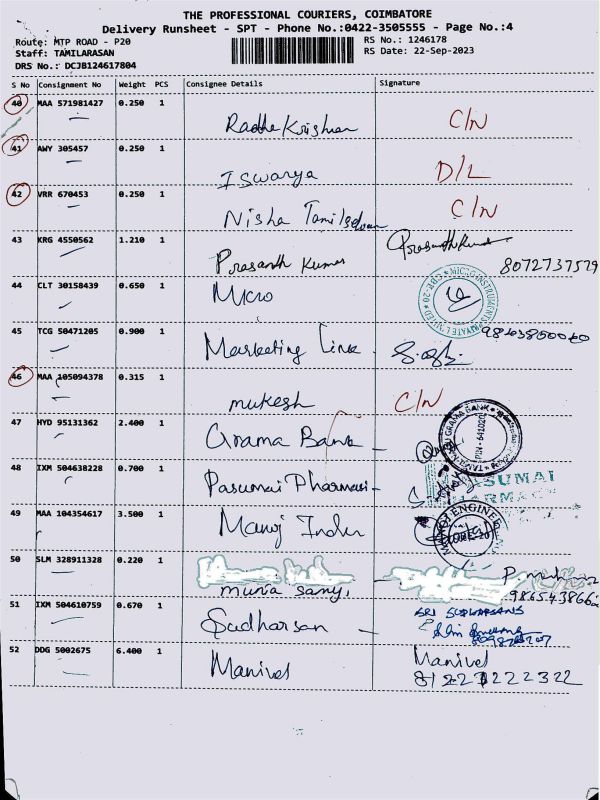 THE PROFESSIONAL COURIERS, COIMBATORE
Delivery Runsheet - SPT - Phone No.:0422-3505555 - Page No.:4
Route: MTP ROAD - P20
Staff: TAMILARASAN
DRS No.: DCJB124617804
RS No.: 1246178
RS Date: 22-Sep-2023
S No Consignment No Weight PCS Consignee Details Signature
40 MAA 571981427 0.250 1 Radha Krishnan C/N
41 AWY 305457 0.250 1 Iswarya D/L
42 VRR 670453 0.250 1 Nisha Tamilselvan C/N
43 KRG 4550562 1.210 1 Prasanth Kumar Prasanth Kumar
8072737579
44 CLT 30158439 0.650 1 Micro
MICRO INSTRUMENTS PRIVATE LIMITED CBE-20
45 TCG 50471205 0.900 1 Marketing Link
46 MAA 105094378 0.315 1 mukesh C/N
47 HYD 95131362 2.400 1 Grama Bank
TAMIL NADU GRAMA BANK
48 IXM 504638228 0.700 1 Pasumai Pharmasi
PASUMAI PHARMACY
49 MAA 104354617 3.500 1 Manoj
50 SLM 328911328 0.220 1 munia samy,
51 IXM 504610759 0.670 1 Sudharsan
SRI
52 DDG 5002675 6.400 1 Manivel Manivel